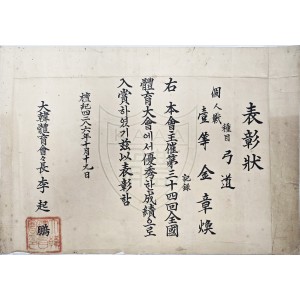 表彰狀
種目 弓道
個人戰
壹等 金章煥
記錄
右 本會主催第三十四回全國
體育大會에서優秀한成績으로
入賞하였기玆以表彰함
檀紀四二八六年十月十九日
大韓體育會々長 李起鵬